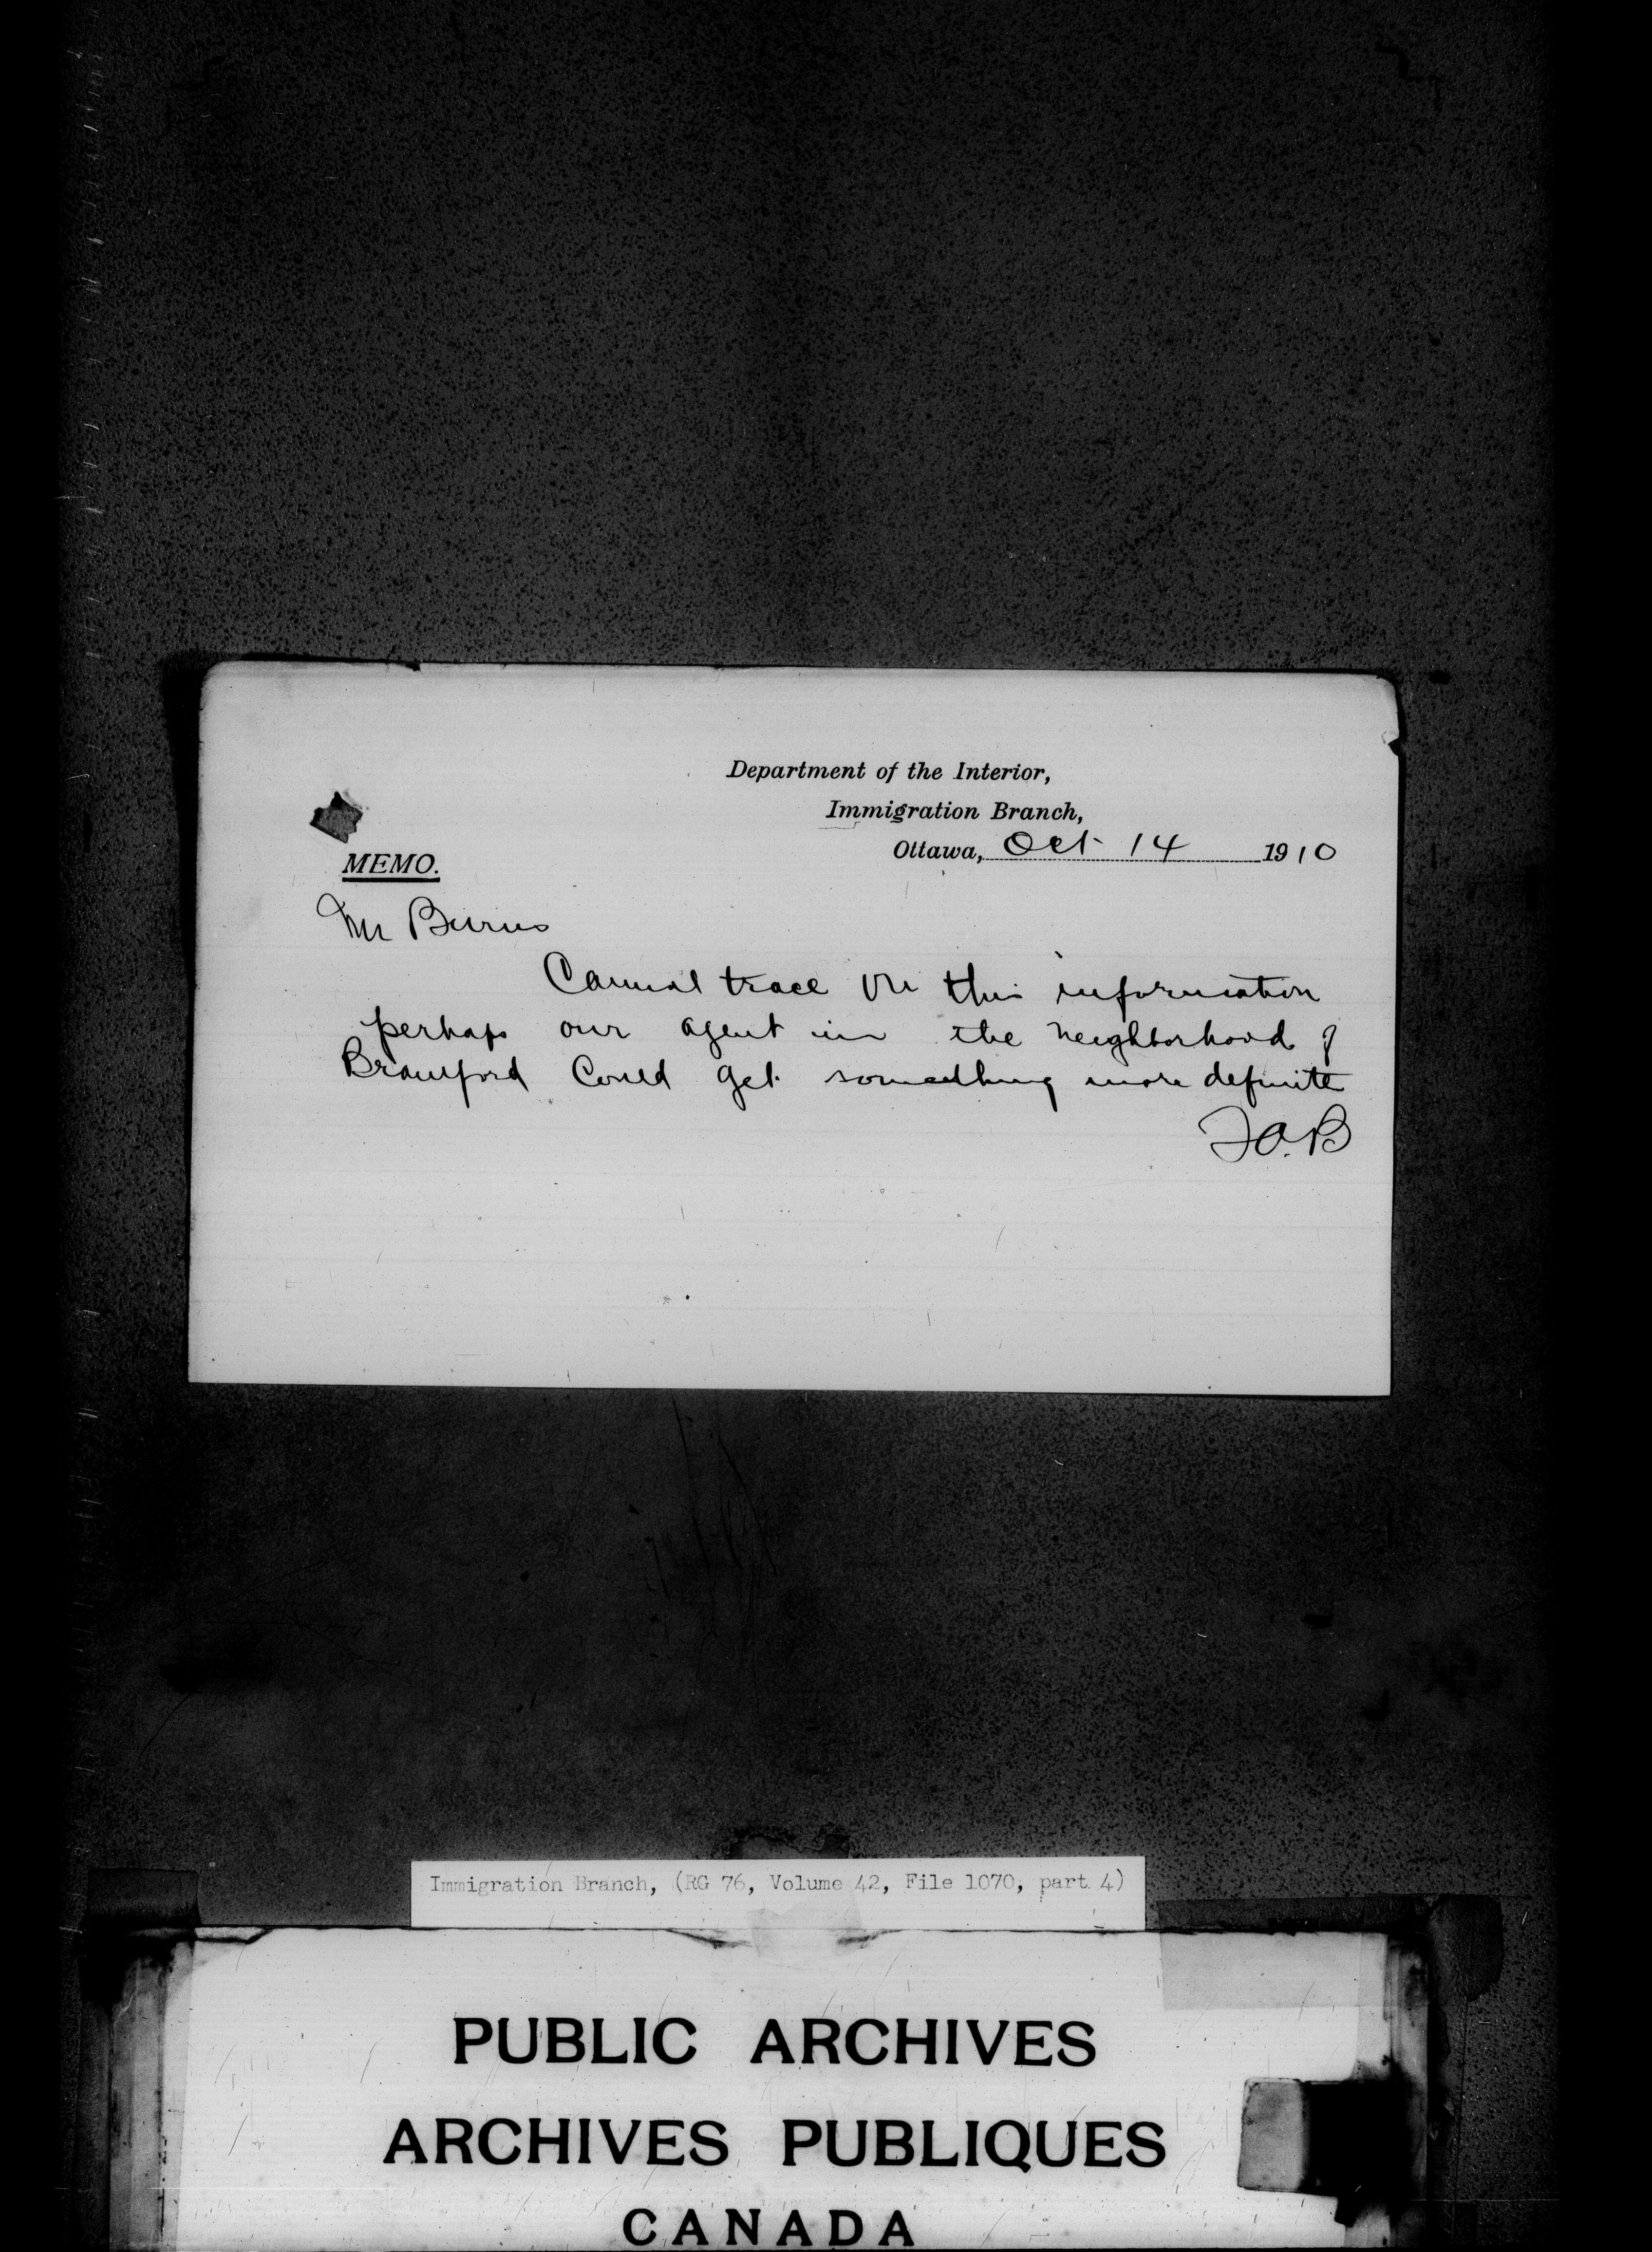 Department of the Interior,
Immigration Branch,
Ottawa, Oct 14 1910
MEMO.
Mr Burns
Cannot trace on this information
perhaps our agent in the neighborhood of
Branford Could get something more definite
F.O.B
Immigration Branch, (RG 76, Volume 42, File 1070, part 4)
PUBLIC ARCHIVES
ARCHIVES PUBLIQUES
CANADA